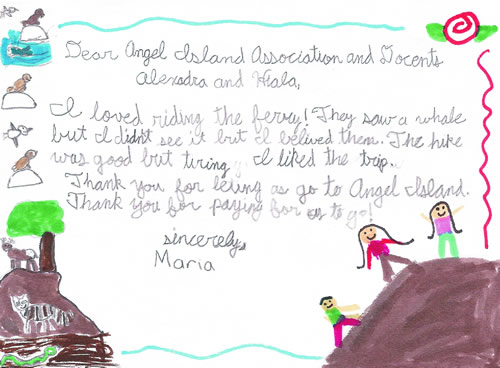 Dear Angel Island Association and Docents
Alexadra and Keala,
I loved riding the ferry! They saw a whale
but I didn't see it but I belived them. The hike
was good but tiring, I liked the trip..
Thank you for leting as go to Angel Island.
Thank you for paying for us to go!
sincerely,
Maria